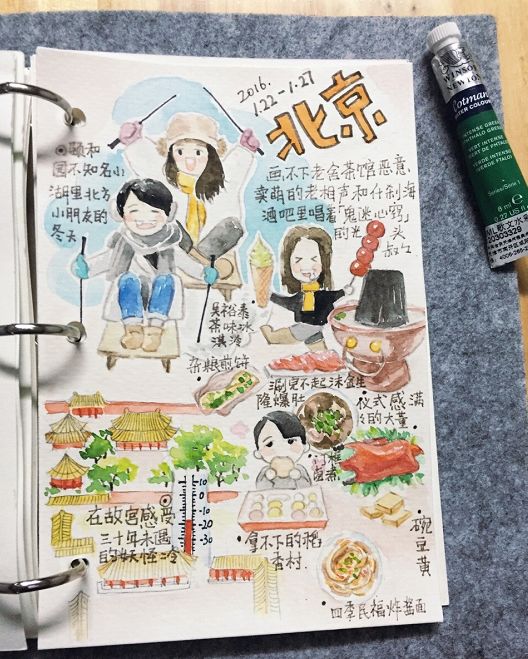 2016.
1.22-1.27
北京
颐和
园不知名小
湖里北方
小朋友的
冬天
画不下老舍茶馆恶意
卖萌的老相声和什刹海
酒吧里唱着「鬼迷心窍」
的光头
叔々
吴裕泰
茶味冰
淇淋
杂粮煎饼
涮儿不起沫
隆爆肚
仪式感满
々的大董
卤煮
+10
0
-10
-20
-30
在故宫感受
三十年未遇
的妖怪冷
拿不下的稻
香村.
碗
豆
黄
四季民福炸酱面
WINSOR
& NEWTON
Cotman
WATER COLOUR
INTENSE GREEN
VERDE INTENSO
Series/Série 1
8 ml